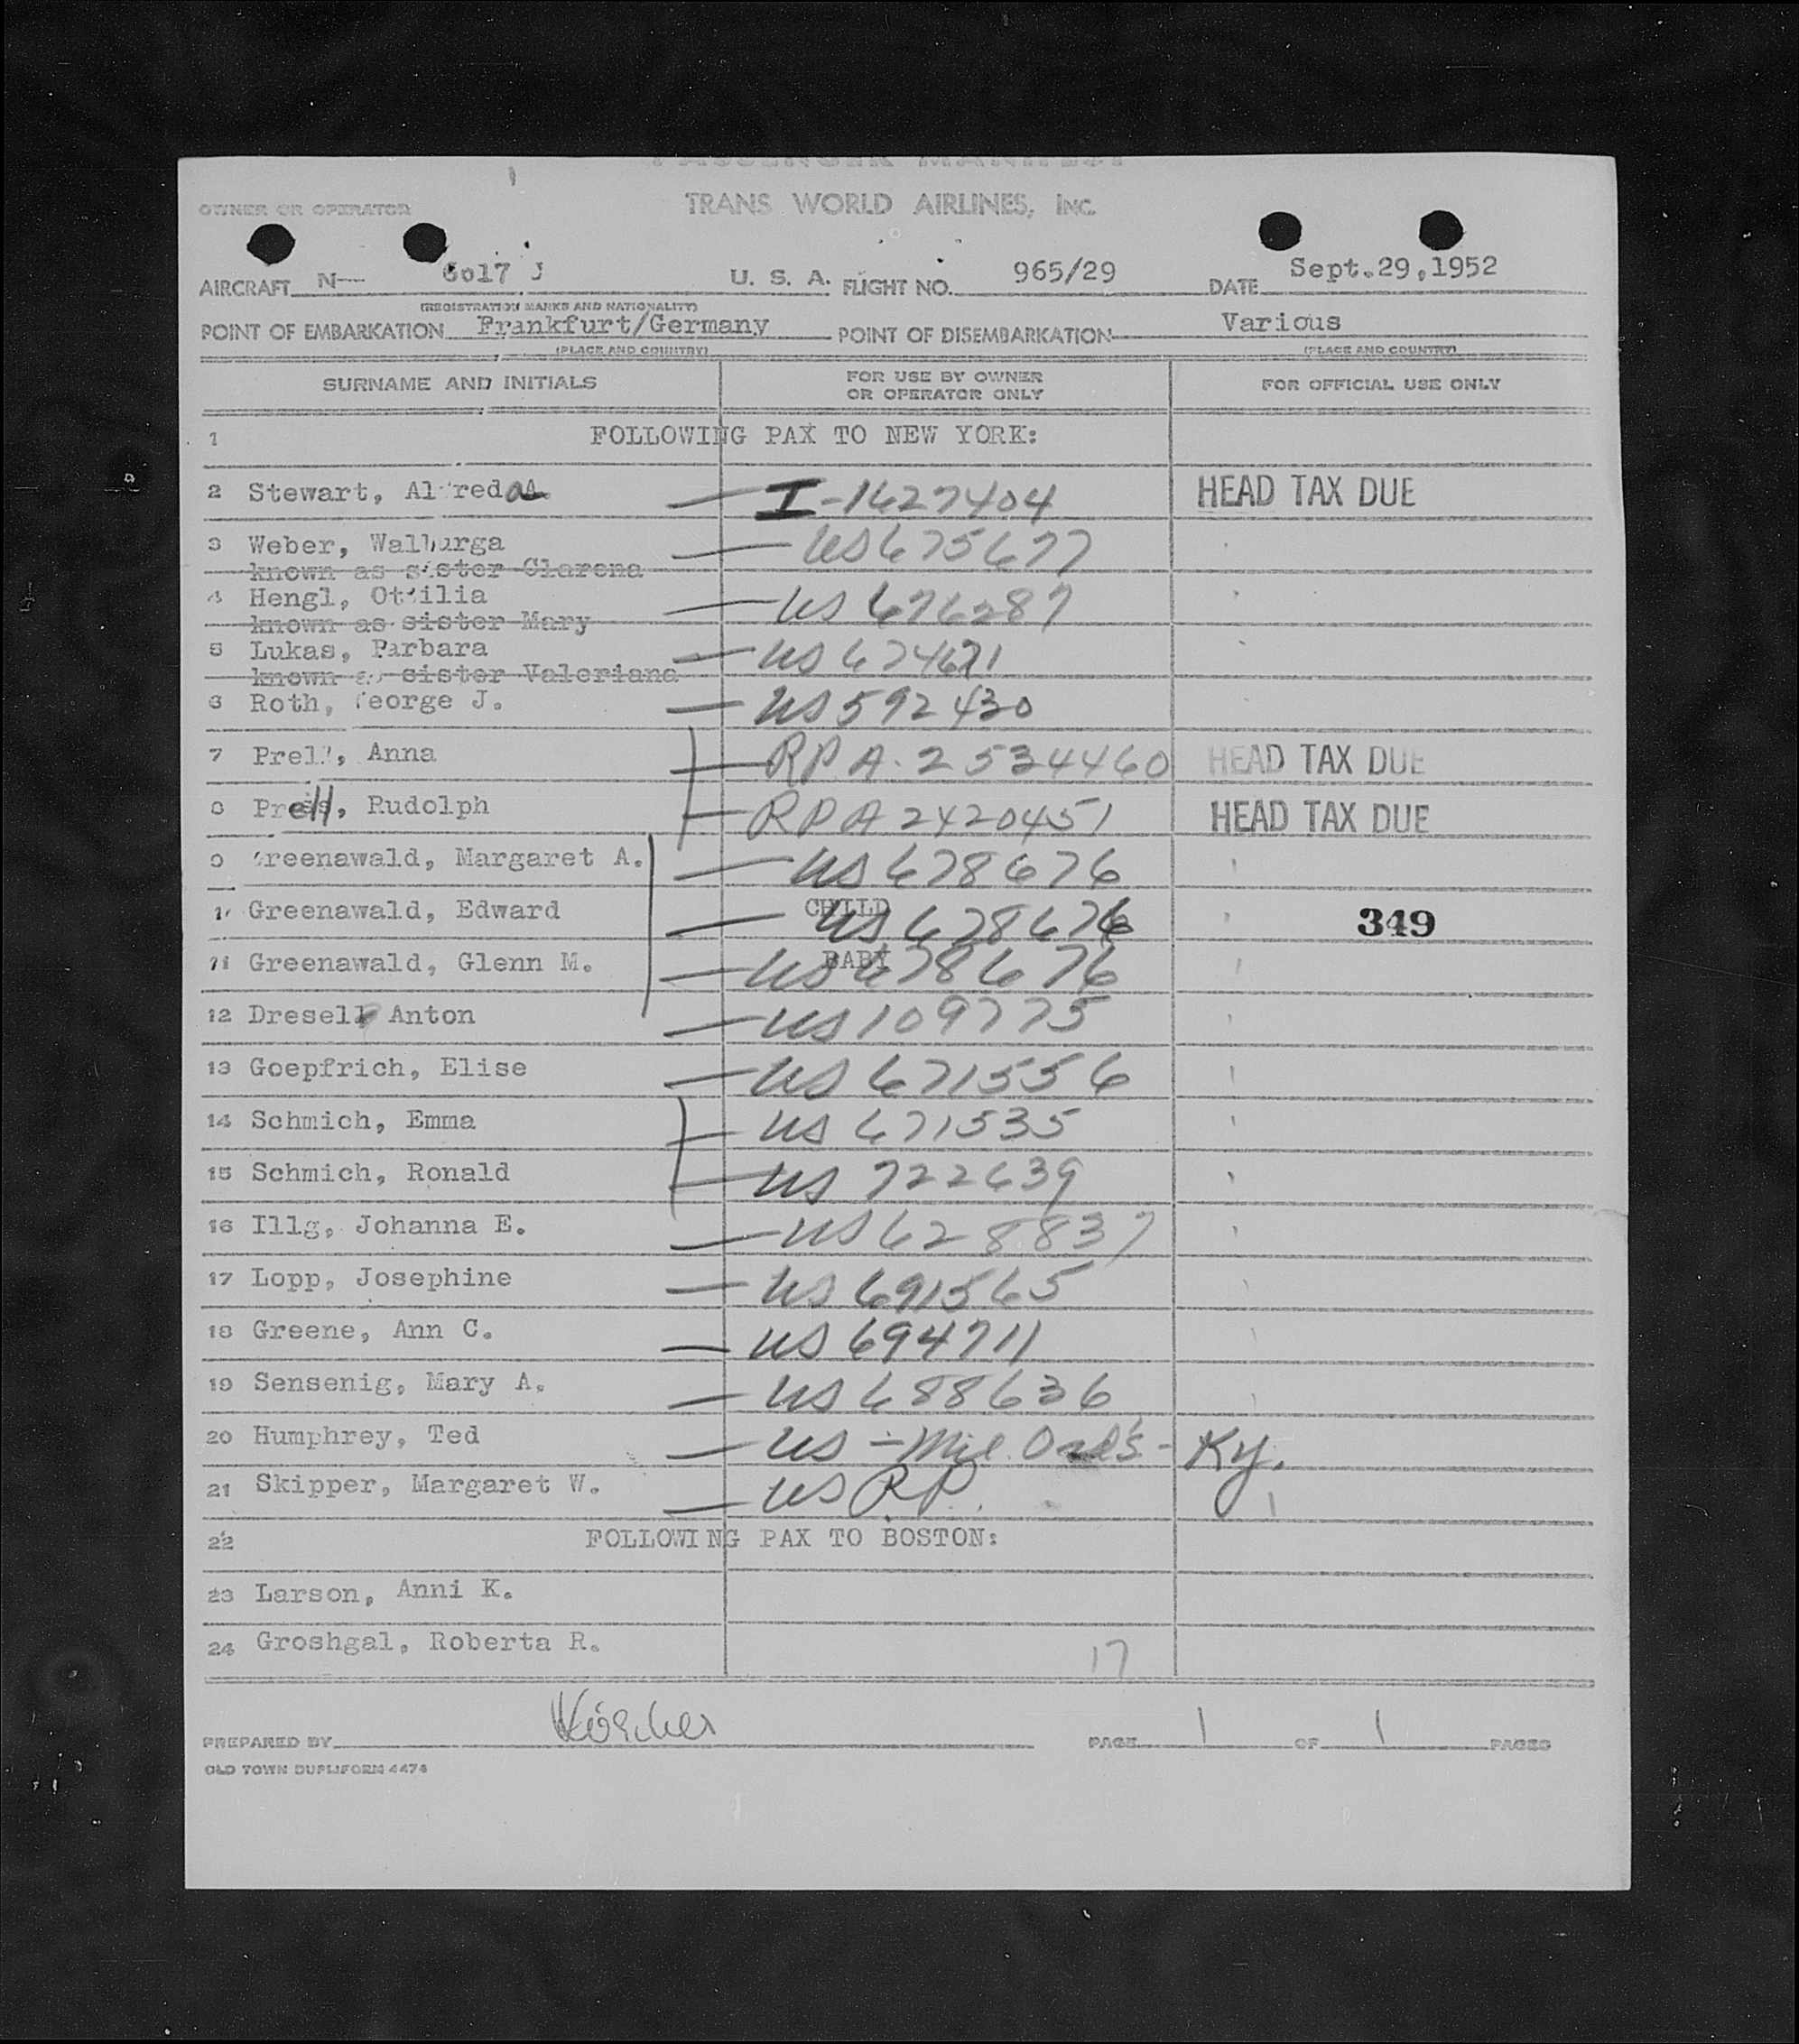 PASSENGER MANIFEST
OWNER OR OPERATOR TRANS WORLD AIRLINES, INC.
AIRCRAFT N— 6017 J U. S. A. FLIGHT NO. 965/29 DATE Sept.29,1952
(REGISTRATION MARKS AND NATIONALITY)
POINT OF EMBARKATION Frankfurt/Germany POINT OF DISEMBARKATION Various
(PLACE AND COUNTRY) (PLACE AND COUNTRY)
SURNAME AND INITIALS FOR USE BY OWNER OR OPERATOR ONLY FOR OFFICIAL USE ONLY
1 FOLLOWING PAX TO NEW YORK:
2 Stewart, Alfreda A. — I-1627404 HEAD TAX DUE
3 Weber, Walburga — US 675677
known as sister Clarena
4 Hengl, Ottilia — US 676287
known as sister Mary
5 Lukas, Barbara — US 674671
known as sister Valeriana
6 Roth, George J. — US 592430
7 Prell, Anna — RPA. 2534460 HEAD TAX DUE
8 Prell, Rudolph — RPA 2420451 HEAD TAX DUE
9 Greenawald, Margaret A. — US 678676
10 Greenawald, Edward — CHILD US 678676 349
11 Greenawald, Glenn M. — BABY US 678676
12 Dresel, Anton — US 109775
13 Goepfrich, Elise — US 671556
14 Schmich, Emma — US 671535
15 Schmich, Ronald — US 722639
16 Illg, Johanna E. — US 628837
17 Lopp, Josephine — US 691565
18 Greene, Ann C. — US 694711
19 Sensenig, Mary A. — US 688636
20 Humphrey, Ted — US - Mil. Ord's - Ky.
21 Skipper, Margaret W. — US RP.
22 FOLLOWING PAX TO BOSTON:
23 Larson, Anni K.
24 Groshgal, Roberta R.
17
PREPARED BY PAGE 1 OF 1 PAGES
OLD TOWN DUPLIFORM 4474